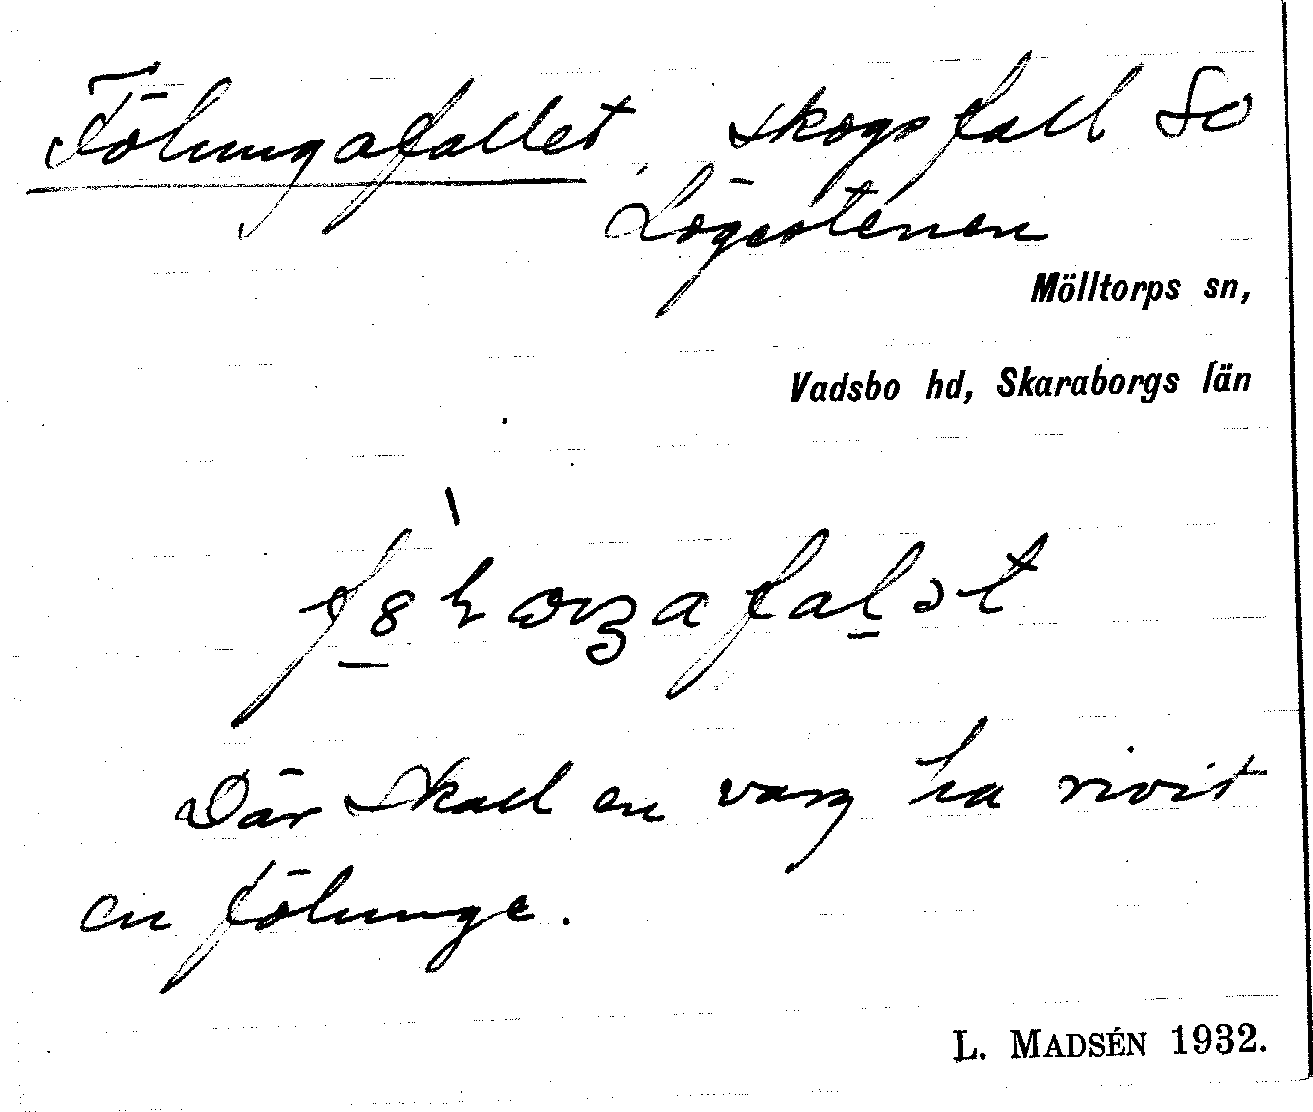 Fölungafallet, skogsfall So
Lögestenen
Mölltorps sn,
Vadsbo hd, Skaraborgs län
Där skall en varg ha rivit
en fölunge.
L. MADSÉN 1932.